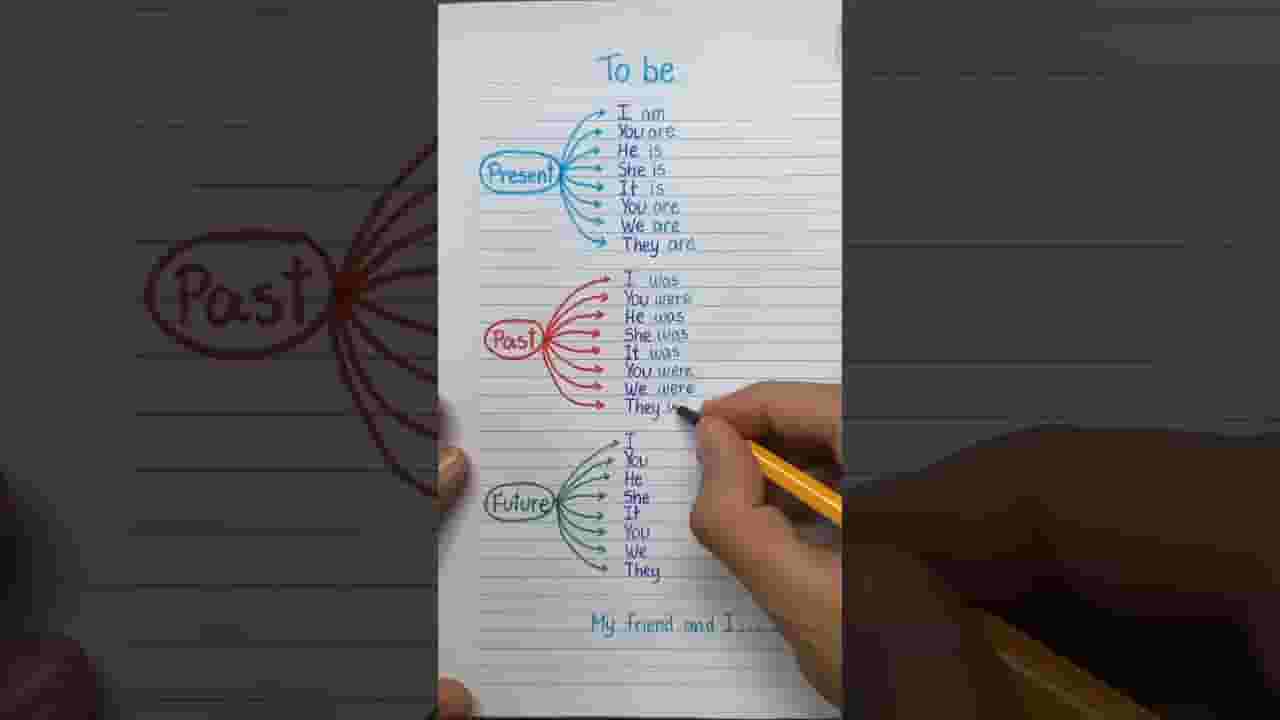 To be
Present
I am
You are
He is
She is
It is
You are
We are
They are
Past
I was
You were
He was
She was
It was
You were
We were
They
Future
I
You
He
She
It
You
We
They
My friend and I...
Past